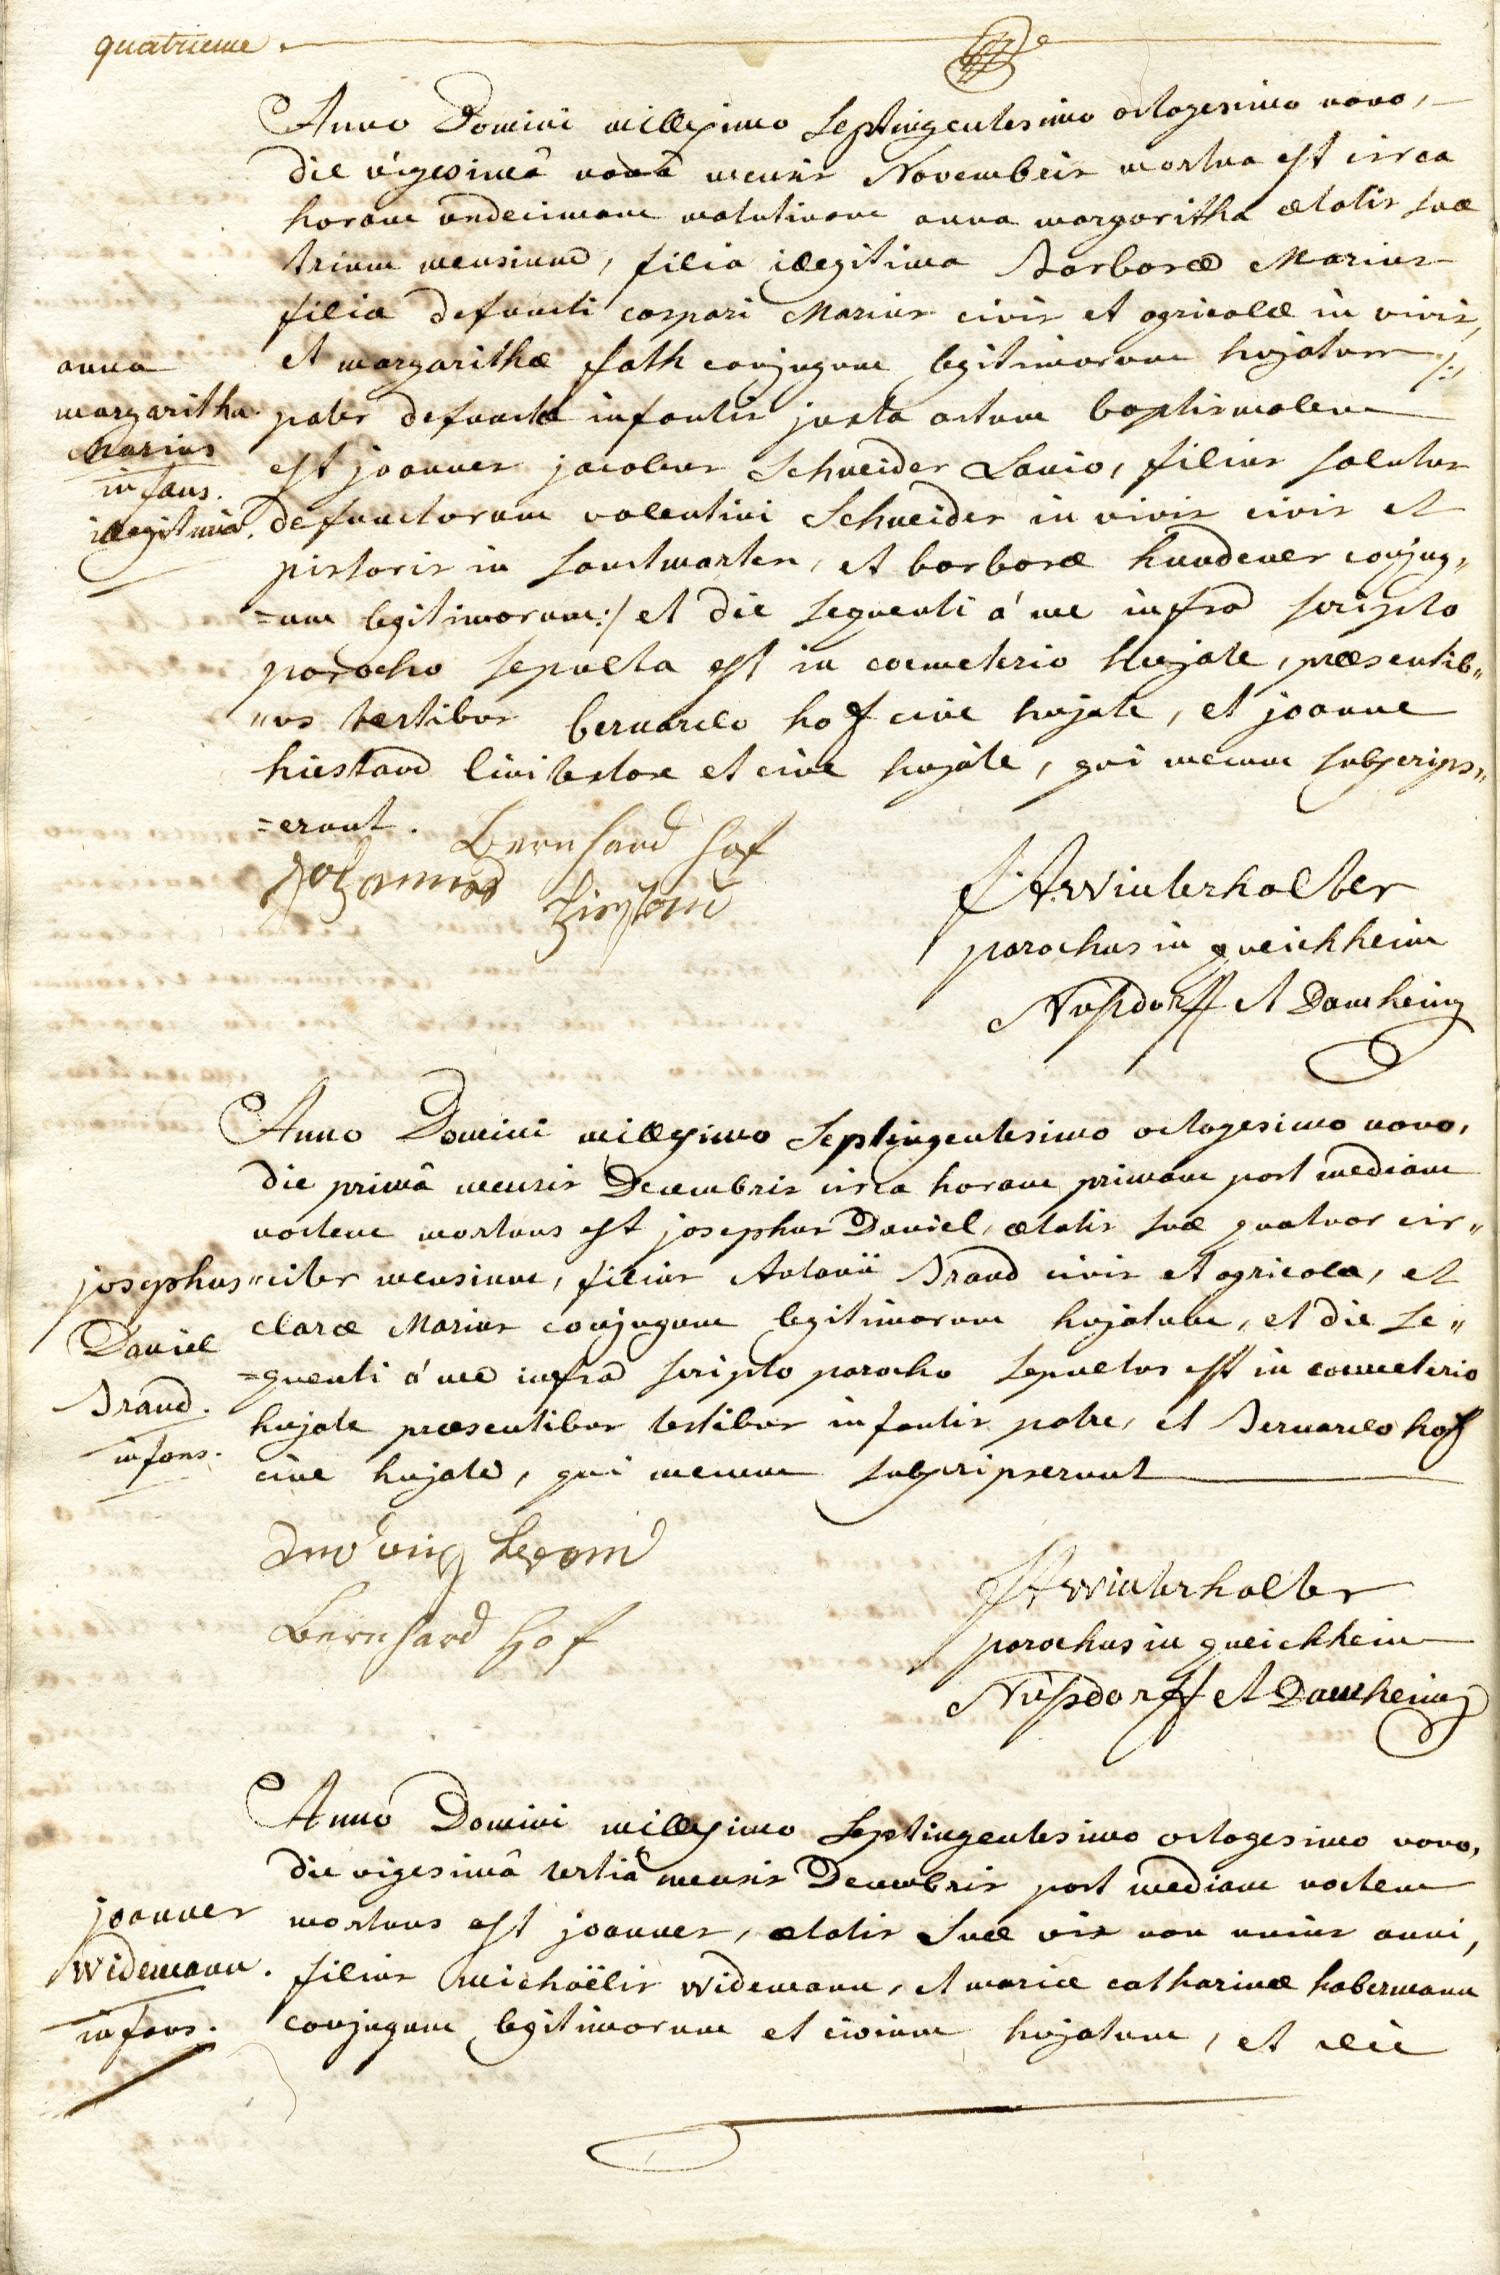 quatrieme.
Anno Domini millesimo Septingentesimo octogesimo nono,
die vigesimâ nonâ mensis Novembris mortua est circa
horam undecimam matutinam anna margaritha ætatis suæ
trium mensium, filia illegitima Barbaræ Marius
filiæ defuncti caspari Marius civis et agricolæ in vivis,
et margarithæ fath conjugum legitimorum hujatum /:
anna
margaritha
Marius
infans.
illegitima.
pater defunctæ infantis juxta actum baptismalem
est joannes jacobus Schneider Lanio, filius solutus
defunctorum valentini Schneider in vivis civis et
pistoris in sanctmarten, et barbaræ hundemer conjug„
=um legitimorum:/ et die sequenti á me infra scripto
parocho sepulta est in coemeterio hujate, præsentib„
„us testibus bernardo hof cive hujate, et joanne
hiestand linitextore et cive hujate, qui mecum subscrips„
=erunt.
Bernhard Hof
Johannes
J A Winterholter
parochus in queichheim
Nußdorff et Damheim
Anno Domini millesimo Septingentesimo octogesimo nono,
die primâ mensis Decembris circa horam primam post mediam
noctem mortuus est josephus Daniel, ætatis suæ quatuor cir„
„citer mensium, filius Antonii Brand civis et agricola, et
claræ Marius conjugum legitimorum hujatum, et die se„
=quenti á me infra scripto parocho sepultus est in coemeterio
hujate præsentibus testibus infantis patre, et Bernardo hof
cive hujate, qui mecum subscripserunt
josephus
Daniel
Brand.
infans.
Bernhard Hof
J A Winterholter
parochus in queichheim
Nußdorff et Damheim
Anno Domini millesimo Septingentesimo octogesimo nono,
die vigesimâ tertiâ mensis Decembris post mediam noctem
mortuus est joannes, ætatis suæ vix non unius anni,
filius michaëlis Widemann, et mariæ catharinæ habermann
conjugum legitimorum et civium hujatum, et die
joannes
Widemann.
infans.